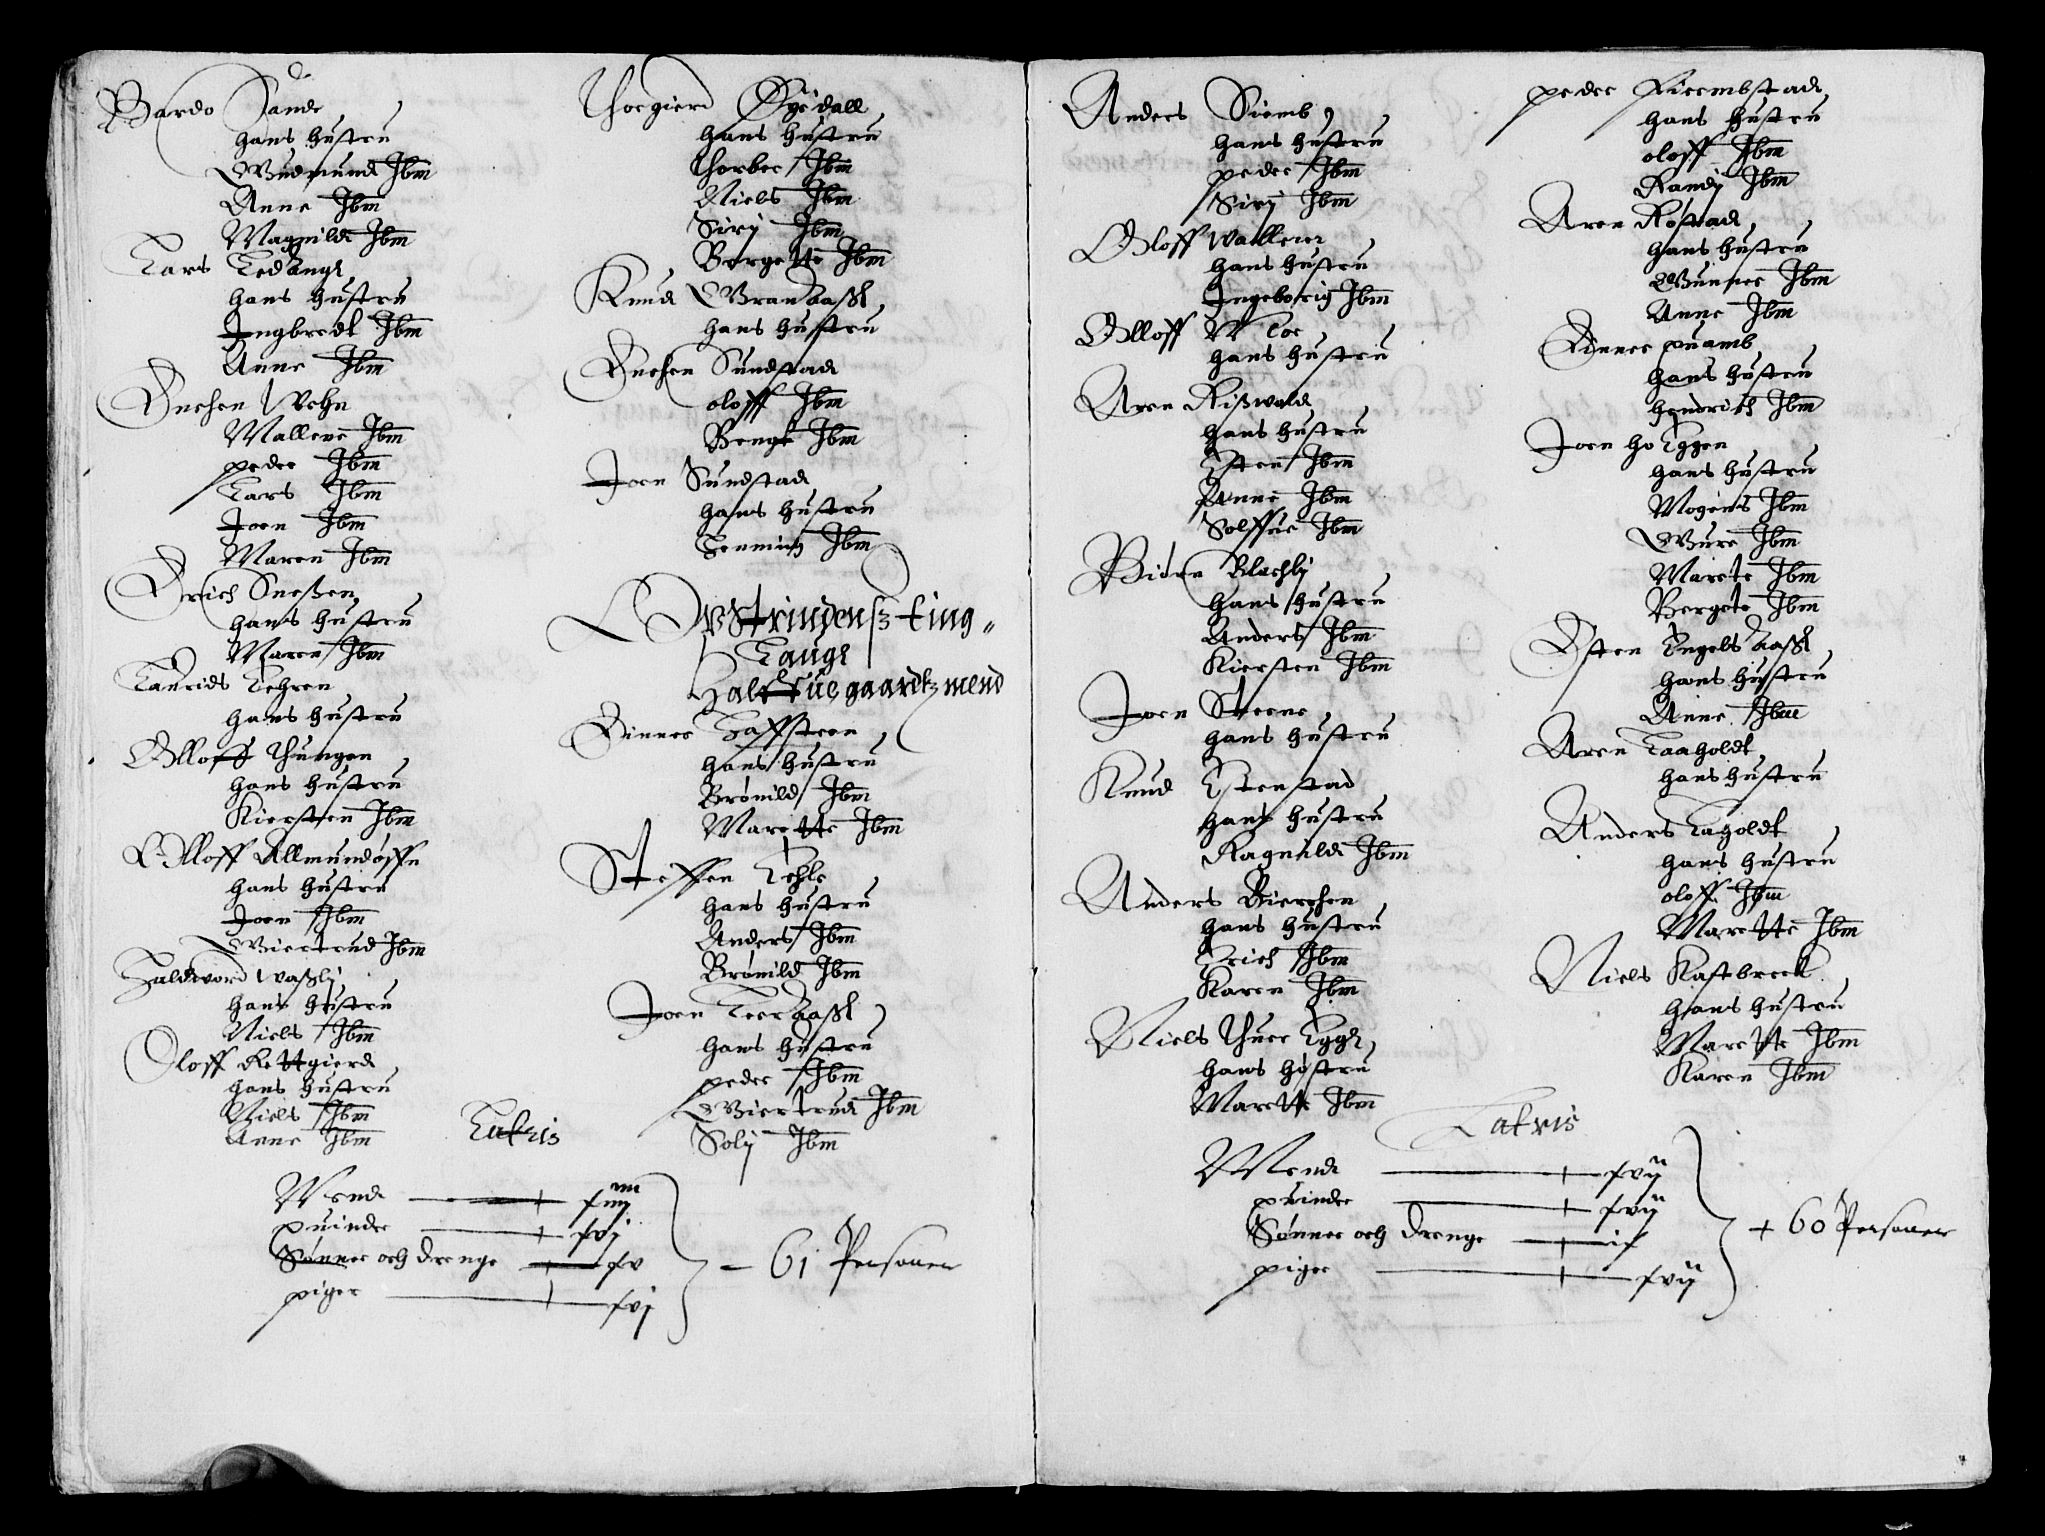 Bardo Sande
hans hustru
Gudmund Ibm
Anne Ibm
Magnild Ibm
Lars Ledangr
hans hustru
Ingbredt Ibm
Anne Ibm
Enchen Vehn
Mallene Ibm
peder Ibm
Lars Ibm
Joen Ibm
Maren Ibm
Erich Sneßen
hans hustru
Maren Ibm
Laurids Lehren
hans hustru
Olloff Thungen
hans hustru
Kiersten Ibm
Olloff Allmundøffn
hans hustru
Joen Ibm
Giertrud Ibm
Haldword Vaßlj
hans hustru
Niels Ibm
Oloff Rettgierd
hans hustru
Niels Ibm
Anne Ibm
Thorgierd Øysdall
hans hustru
Thorber Ibm
Niels Ibm
Sirj Ibm
Bergette Ibm
Knud Granaaßl
hans hustru
Enchen Sundstad
oloff Ibm
Bengt Ibm
Joen Sundstad
hans hustru
Ibm
Wstrindenß ting
Laugr
Halffue gaardtz mend
Einner Haffsteen
hans hustru
Brønild Ibm
Marette Ibm
Steffen Lehle
hans hustru
Anders Ibm
Brønild Ibm
Joen Leeraaßl
hans hustru
peder Ibm
Giertrud Ibm
Solj Ibm
Latris
Mend
quinder fvj
Sønner och drenge fv
piger fvj
61 Personer
Anders Siemb
hans hustru
peder Ibm
Sirj Ibm
Oloff Wallerer
hans hustru
Ingeborig Ibm
Olloff Moe
hans hustru
Aren Rißwold
hans hustru
Østen Ibm
Anne Ibm
Solffue Ibm
Biørn Blechlj
hans hustru
Anders Ibm
Kiersten Ibm
Joen Steene
hans hustru
Knud Estenstad
hans hustru
Ragnild Ibm
Anders Bierchen
hans hustru
Erich Ibm
Karen Ibm
Niels Thuer Eggr
hans hustru
Marette Ibm
peder Fieembstad
hans hustru
oloff Ibm
Randj Ibm
Aren Rostad
hans hustru
Gunner Ibm
Anne Ibm
Einner quamb
hans hustru
hendrich Ibm
Joen ho Eggen
hans hustru
Mogens Ibm
Gure Ibm
Marete Ibm
Bergete Ibm
Østen Engelsaaßl
hans hustru
Anne Ibm
Aren Laaholdt
hans hustru
Anders Lagoldt
hans hustru
oloff Ibm
Marette Ibm
Niels Kastbreck
hans hustru
Marette Ibm
Karen Ibm
Latris
Mend fvij
quinder fvij
Sønner och drenge ix
piger fvij
60 Personer